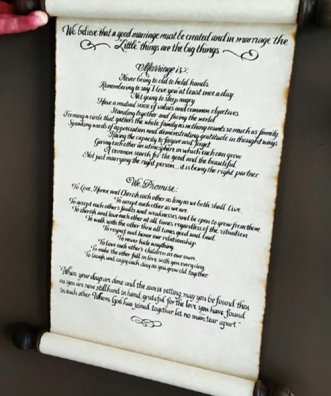 We believe that a good marriage must be created and in marriage the
"Little" things are the big things
Marriage is:
Never being to old to hold hands.
Remembering to say I love you at least once a day
Not going to sleep angry
Have a mutual sense of values and common objectives.
Standing together and facing the world.
Forming a circle that gathers the whole family as nothing counts so much as family
Speaking words of appreciation and demonstrating gratitude in thoughtful ways.
Having the capacity to forgive and forget
Giving each other an atmosphere in which each can grow
A common search for the good and the beautiful
Not just marrying the right person... it is being the right partner
We Promise:
To Love, Honor and Cherish each other as long as we both shall live.
To accept each other as we are
To accept each other's faults and weaknesses and be open to grow from them.
To cherish and love each other at all times regardless of the situation
To walk with the other thru all times good and bad.
To respect and honor our relationship.
To never hide anything
To love each other's children as our own
To make the other fall in love with you every day
To laugh and enjoy each day as you grow old together
"When your days are done and the sun is setting, may you be found then
as you are now still hand in hand, grateful for the love you have found
in each other. Whom God has joined together let no man tear apart."